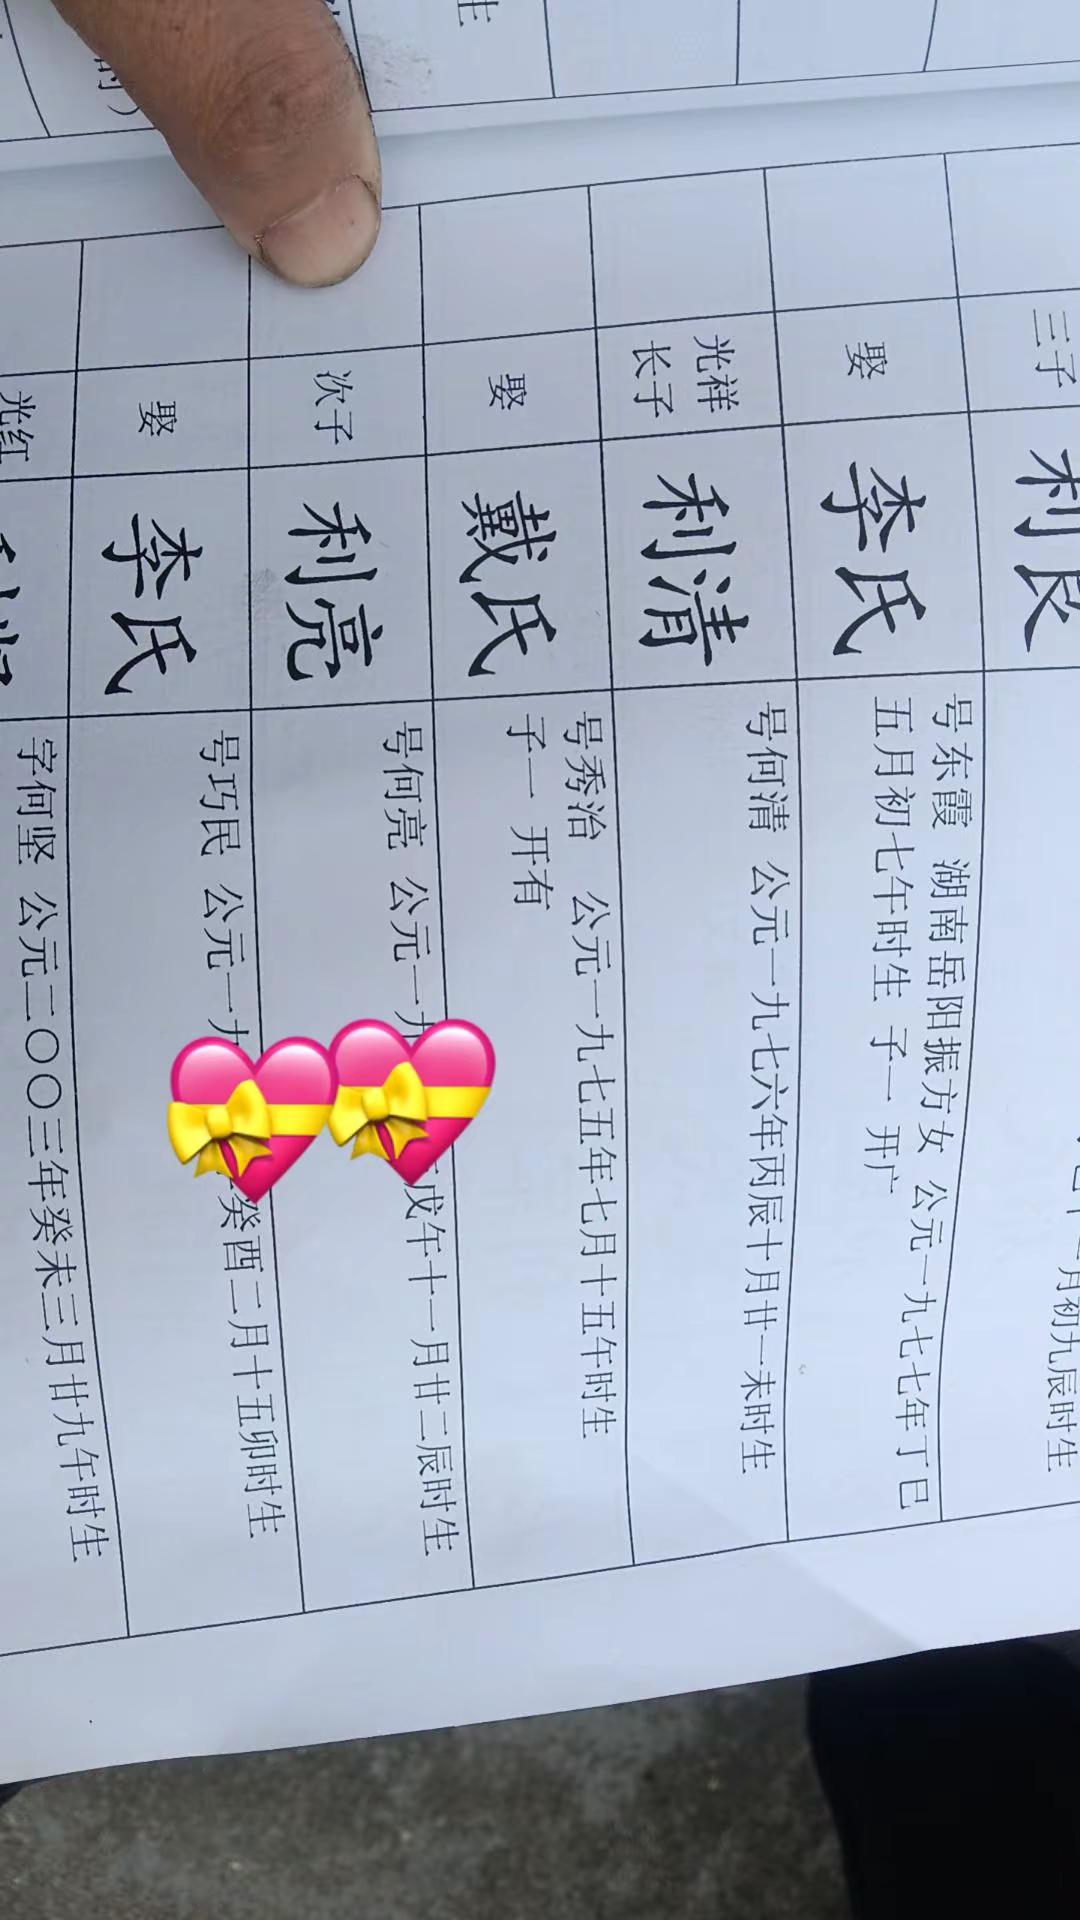 三子
利良
月初九辰时生
娶
李氏
号东霞 湖南岳阳振方女 公元一九七七年丁巳
五月初七午时生 子一 开广
光祥
长子
利清
号何清 公元一九七六年丙辰十月廿一未时生
娶
戴氏
号秀治 公元一九七五年七月十五午时生
子一 开有
次子
利亮
号何亮 公元一九
戊午十一月廿二辰时生
娶
李氏
号巧民 公元一九
癸酉二月十五卯时生
光红
字何坚 公元二〇〇三年癸未三月廿九午时生
生